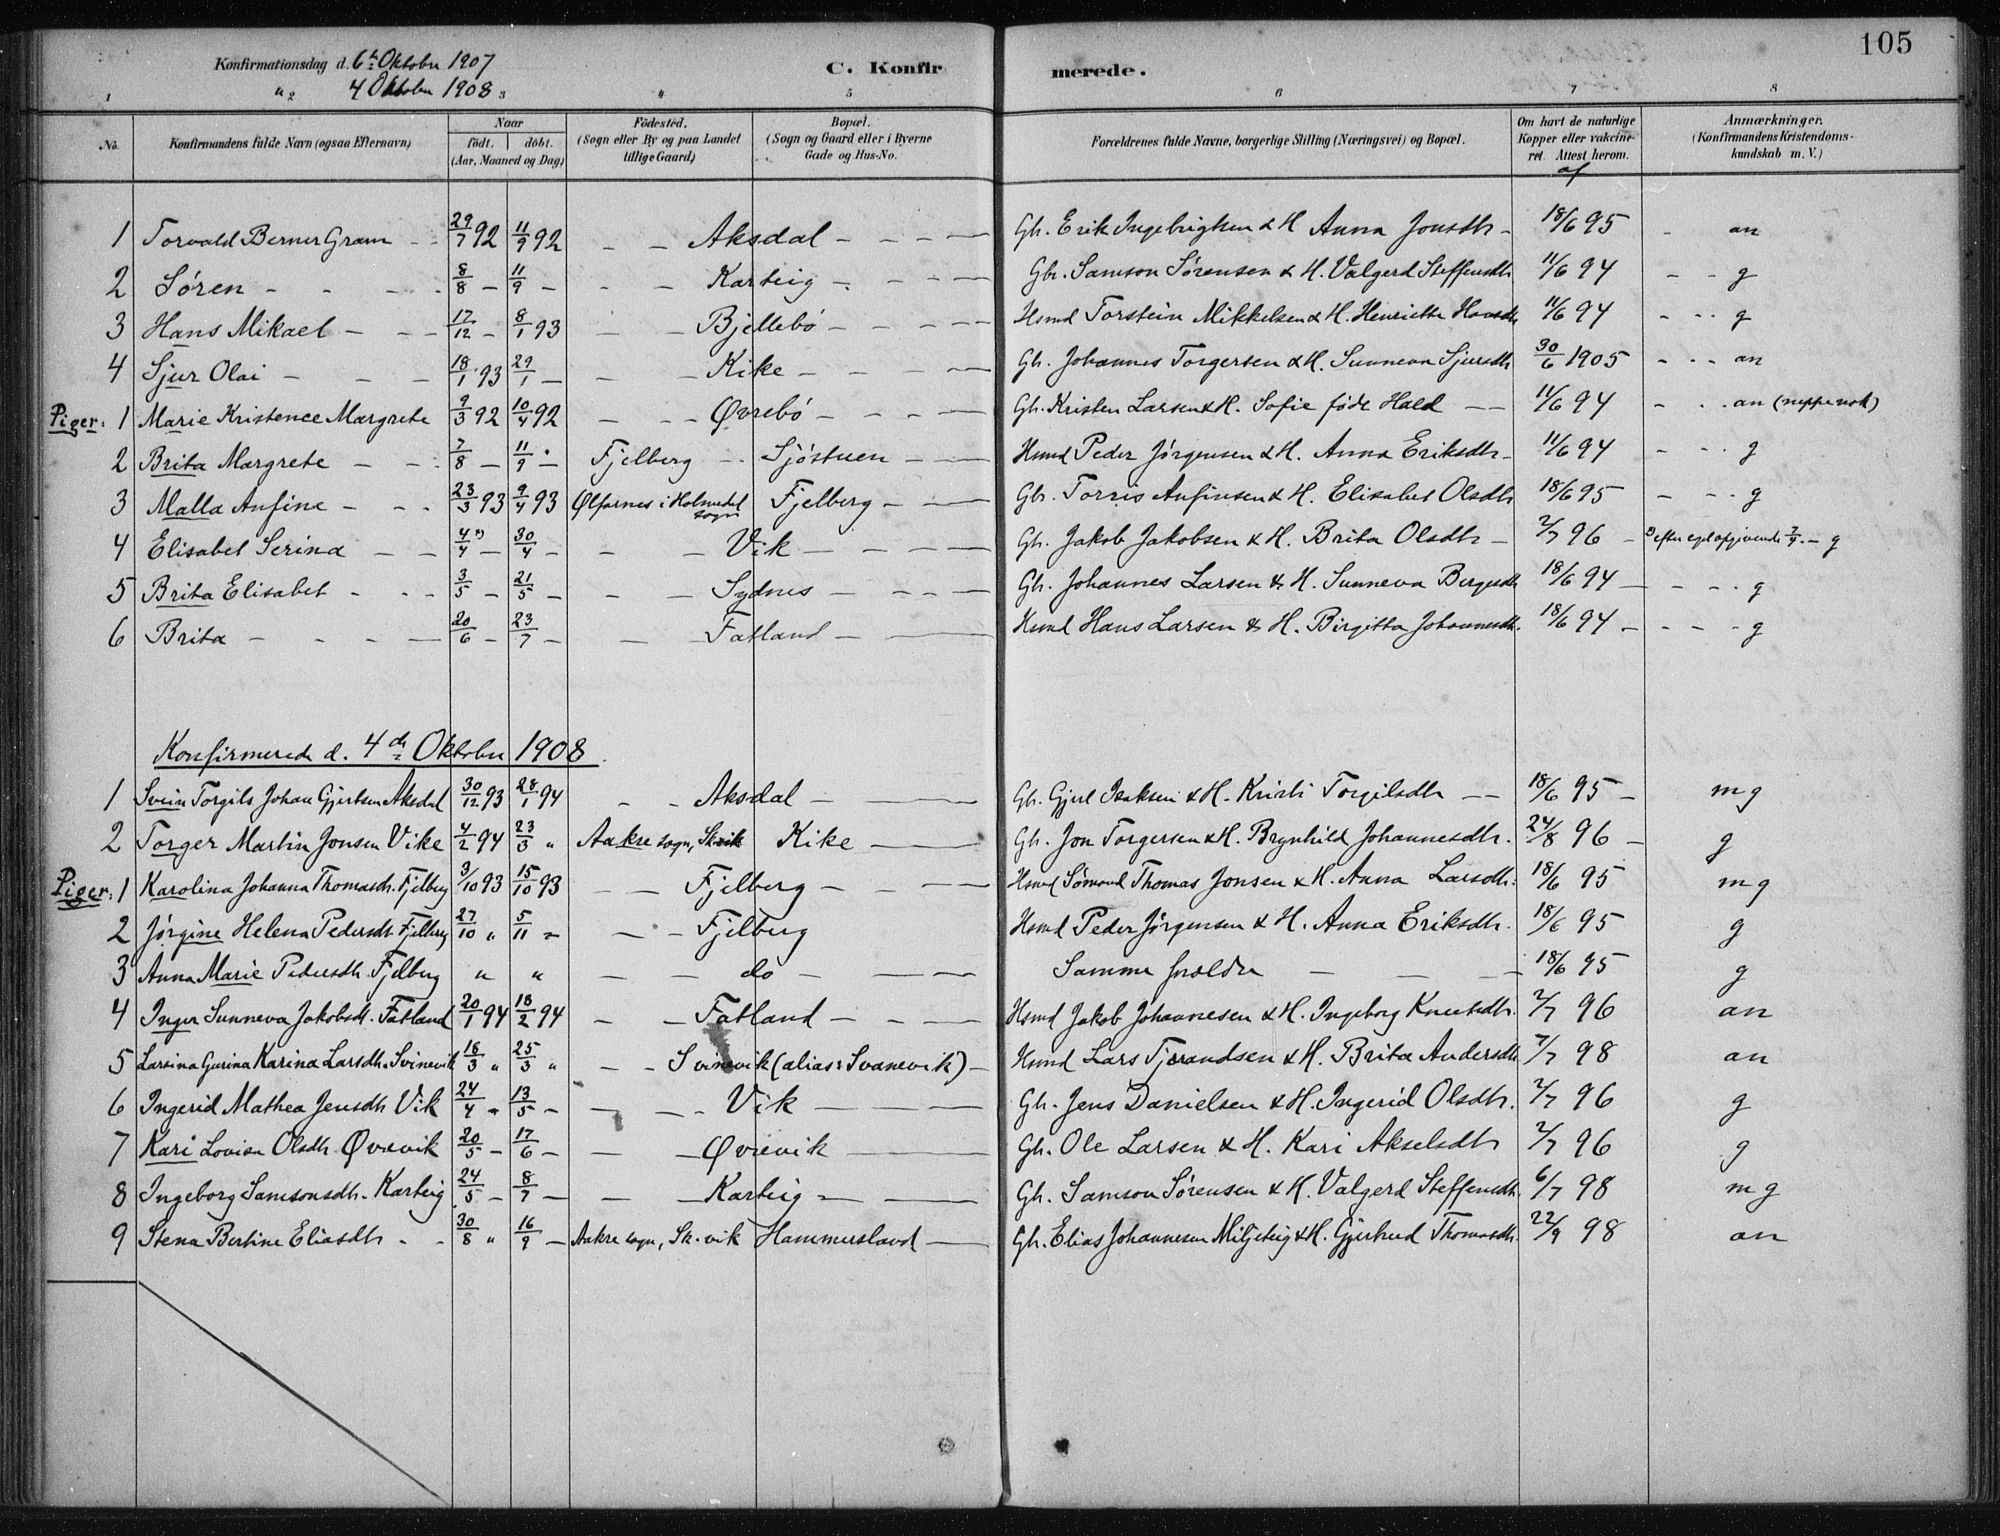 105
Konfirmationsdag d. 6te Oktober 1907 C. Konfirmerede.
" 4 Oktober 1908
1 2 3 4 5 6 7 8
No. Konfirmandens fulde Navn (ogsaa Efternavn) Naar født. døbt. (Aar, Maaned og Dag) Fødested. (Sogn eller By og paa Landet tillige Gaard) Bopæl. (Sogn og Gaard eller i Byerne Gade og Hus-No. Forældrenes fulde Navne, borgerlige Stilling (Næringsvei) og Bopæl. Om havt de naturlige Kopper eller vakcineret. Attest herom. af Anmærkninger. (Konfirmandens Kristendomskundskab m. V.)
1 Torvald Berner Gram - - 29/7 92 11/9 92 - - Aksdal - - - Gbr. Erik Ingebrigtsen & H. Anna Jonsdtr - 18/6 95 - an
2 Søren - - - 8/8 - 11/9 - - - Karteig - - - Gbr. Samson Sørensen & H. Valgerd Steffensdtr 11/6 94 - - g
3 Hans Mikael - - - 17/12 - 8/1 93 - - Bjellebø - - - Hsmd Torstein Mikkelsen & H. Henriette Hansdtr 11/6 94 - - - g
4 Sjur Olai - - - 18/1 93 29/1 - - - Kike - - - Gbr. Johannes Torgersen & H. Sunneva Sjursdtr 30/6 1905 - - - an
Piger: 1 Marie Kristence Margrete 9/3 92 10/4 92 - - - Øvrebø - - - Gbr. Kristen Larsen & H. Sofie føde Hald - - 11/6 94 - - - an (neppe nok)
2 Brita Margrete - - - 7/8 - 11/9 - Fjelberg - - Sjøstuen - - - Hsmd Peder Jørgensen & H. Anna Eriksdtr - 11/6 94 - - - g
3 Malla Anfine - - - 23/3 93 9/4 93 Ølfarnes i Holmedal sogn Fjelberg - - Gbr. Torris Anfinsen & H. Elisabet Olsdtr 18/6 95 - - - g
4 Elisabet Serina - - 4/4 *) - 30/4 - - - Vik - - - Gbr. Jakob Jakobsen & H. Brita Olsdtr - 2/7 96 - *) efter egl. opgivende 7/4 - g
5 Brita Elisabet - - - 3/5 - 21/5 - - - Sydnes - - - Gbr. Johannes Larsen & H. Sunneva Bergesdtr 18/6 94 - - - - g
6 Brita - - - - 20/6 - 23/7 - - - Fatland - - Hsmd Hans Larsen & H. Birgitta Johannesdtr. 18/6 94 - - - - g
Konfirmerede d. 4de Oktober 1908.
1 Svein Torgils Johan Gjertsen Aksdal 30/12 93 28/1 94 - - Aksdal - - Gbr. Gjert Isaksen & H. Kristi Torgilsdtr - - 18/6 95 - mg
2 Torger Martin Jonsen Vike 4/2 94 23/3 " Aakre sogn, Sk.vik Kike - Gbr. Jon Torgersen & H. Brynhild Johannesdtr. 24/8 96 - g
Piger: 1 Karolina Johanna Thomasdtr. Fjelberg 3/10 93 15/10 93 - - Fjelberg - - - Hsmd Sømand Thomas Jonsen & H. Anna Larsdtr. 18/6 95 mg
2 Jørgine Helena Pedersdtr. Fjelberg 27/10 " 5/11 - - - Fjelberg Hsmd Peder Jørgensen & H. Anna Eriksdtr. 18/6 95 g
3 Anna Marie Pedersdtr. Fjelberg " " - - do - - - Samme forældre - - - 18/6 95 g
4 Inger Sunneva Jakobsdtr. Fatland 20/1 94 18/2 94 - - Fatland - - - Hsmd Jakob Johannesen & H. Ingeborg Knutsdtr. 2/7 96 an
5 Larsina Gurina Karina Larsdtr. Svinevik 18/3 " 25/3 " - - Svinevik (alias: Svanevik) - Hsmd Lars Tjerandsen & H. Brita Andersdtr 7/7 98 an
6 Ingerid Mathea Jensdtr. Vik 24/4 - 13/5 - - - - Vik - - Gbr. Jens Danielsen & H. Ingerid Olsdtr. 2/7 96 g
7 Kari Lovise Olsdtr. Øvrevik 20/5 - 17/6 - - - Øvrevik - - Gbr. Ole Larsen & H. Kari Akselsdtr 2/7 96 g
8 Ingeborg Samsonsdtr. Karteig 24/5 - 8/7 - - - Karteig - - Gbr. Samson Sørensen & H. Valgerd Steffensdtr. 6/7 98 mg
9 Stena Bertine Eliasdtr - - 30/8 " 16/9 - Aakre sogn, Sk.vik Hammersland - Gbr. Elias Johannesen Miljeteig & H. Gjertrud Thomasdtr. 22/9 98 an